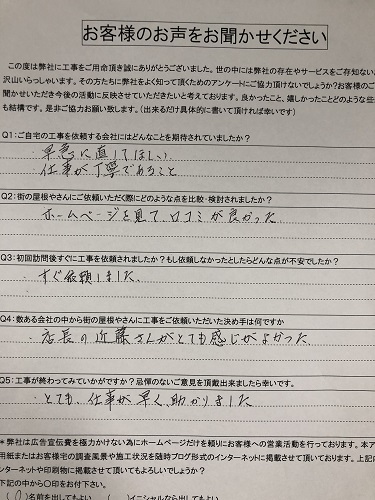 お客様のお声をお聞かせください
この度は弊社に工事をご用命頂き誠にありがとうございました。世の中には弊社の存在やサービスをご存知ない
沢山いらっしゃいます。その方たちに弊社をよく知って頂くためのアンケートにご協力頂けないでしょうか?お客様のご
聞かせいただき今後の活動に反映させていただきたいと考えております。良かったこと、嬉しかったことどのような些
も結構です。是非ご協力お願い致します。(出来るだけ具体的に書いて頂ければ幸いです)
Q1:ご自宅の工事を依頼する会社にはどんなことを期待されていましたか?
・早急に直してほしい
仕事が丁寧であること
Q2:街の屋根やさんにご依頼いただく際にどのような点を比較・検討されましたか?
・ホームページを見て口コミが良かった
Q3:初回訪問後すぐに工事を依頼されましたか?もし依頼しなかったとしたらどんな点が不安でしたか?
・すぐ依頼しました。
Q4:数ある会社の中から街の屋根やさんに工事をご依頼いただいた決め手は何ですか
・店長の近藤さんがとても感じがよかった
Q5:工事が終わってみていかがですか?忌憚のないご意見を頂戴出来ましたら幸いです。
・とても、仕事が早く、助かりました
*弊社は広告宣伝費を極力かけない為にホームページだけを頼りにお客様への営業活動を行っております。本ア
用紙またはお客様宅の調査風景や施工状況を随時ブログ形式のインターネットに掲載させて頂いております。上記に
ンターネットや印刷物に掲載させて頂いてもよろしいでしょうか?
下記の中から〇印をお付下さい。
名前を出してもよい ( )イニシャルなら出してもよい